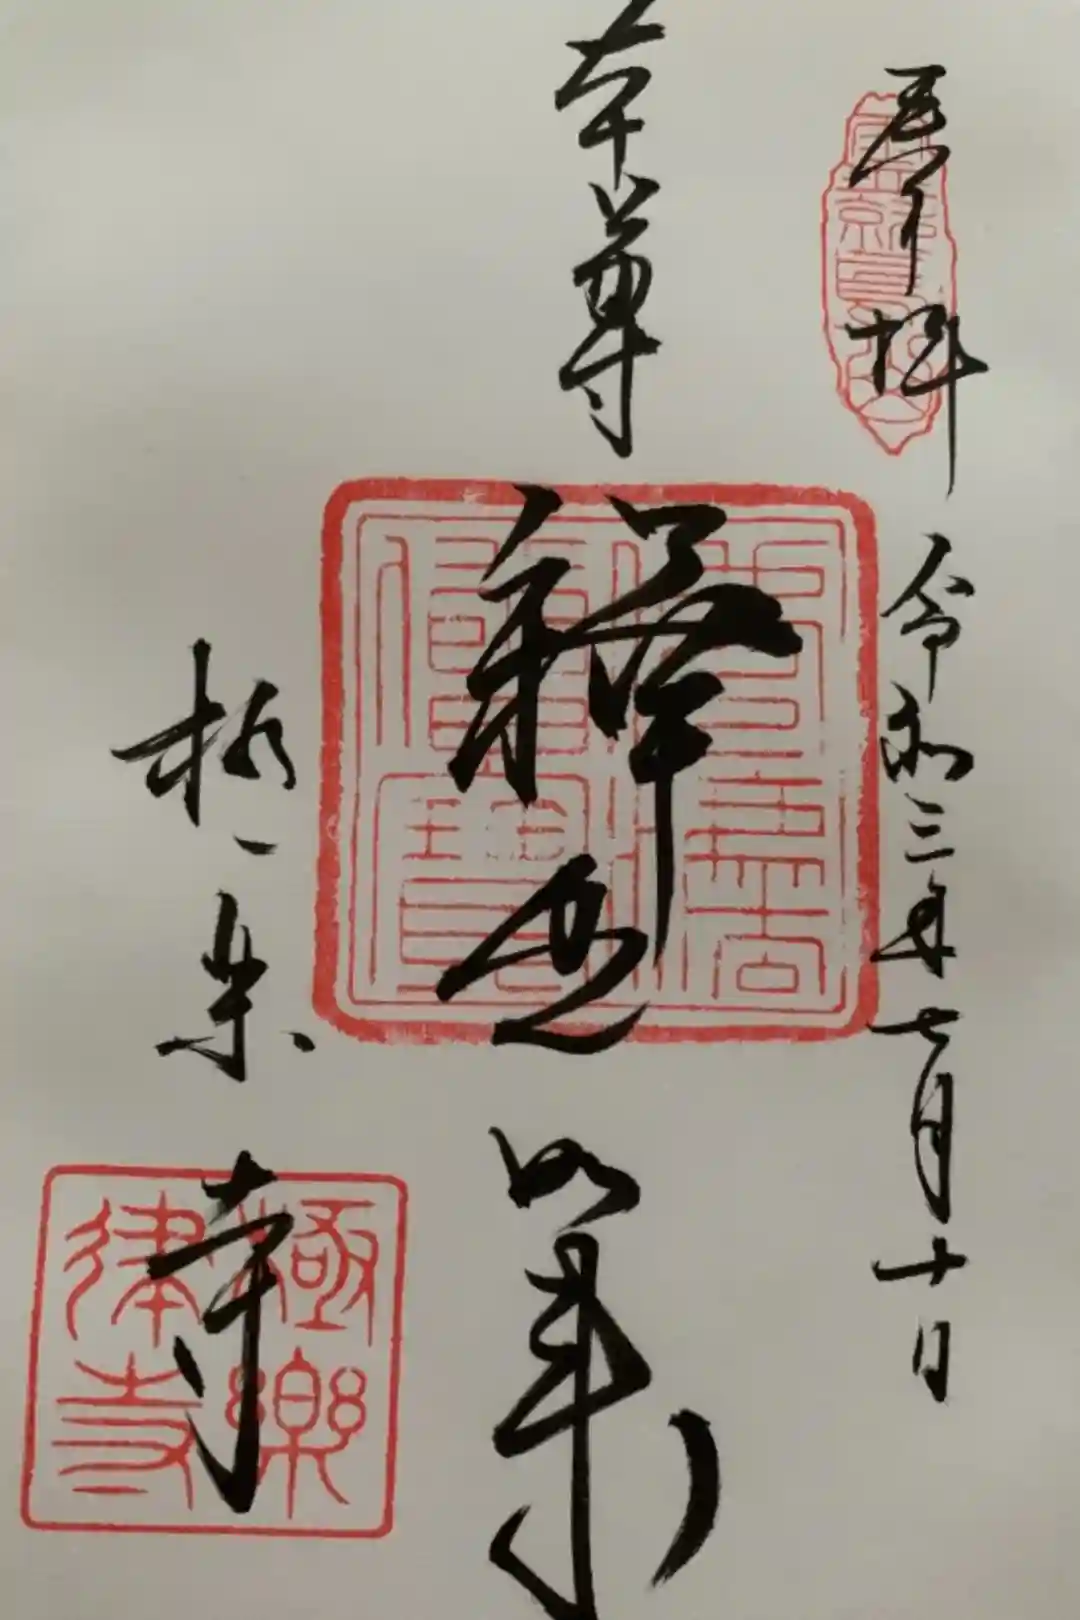 奉拝 令和三年七月十日
本尊 釋迦如来
極楽寺
極樂
律寺